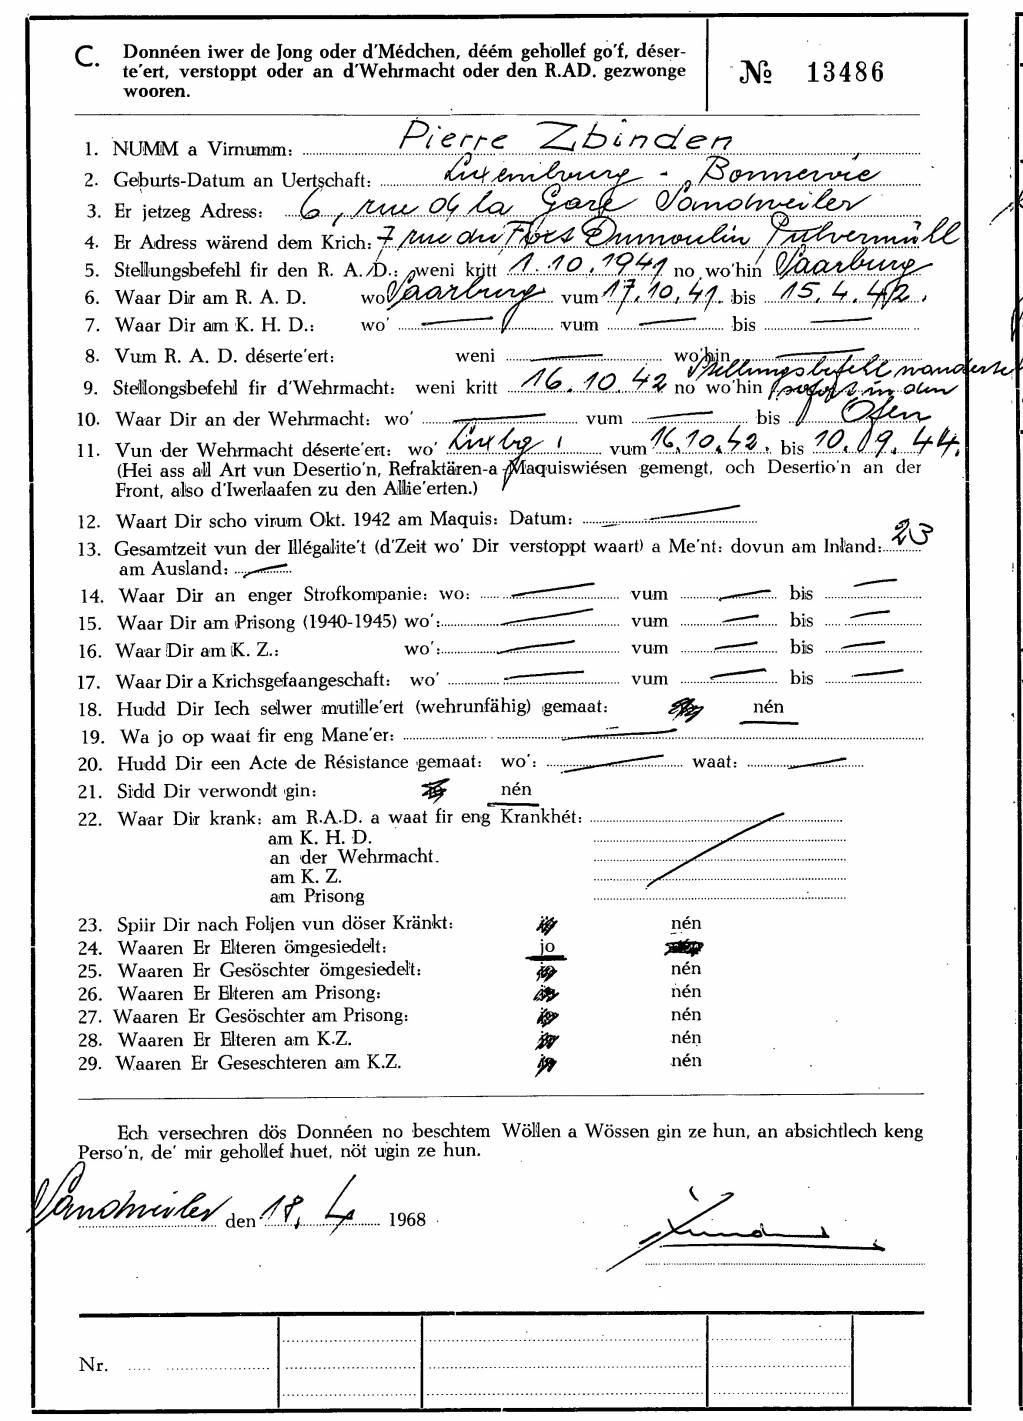 C. Donnéen iwer de Jong oder d'Médchen, déém gehollef go'f, déser-
te'ert, verstoppt oder an d'Wehrmacht oder den R.AD. gezwonge
wooren.
№ 13486
1. NUMM a Virnumm: Pierre Zbinden
2. Geburts-Datum an Uertschaft: Luxemburg - Bonnevoie
3. Er jetzeg Adress: 6, rue de la Gare Sandweiler
4. Er Adress wärend dem Krich: 7 rue du Fort Dumoulin Pulvermühl
5. Stellungsbefehl fir den R. A. D.: weni kritt 1.10.1941 no wo'hin Saarburg
6. Waar Dir am R. A. D. wo Saarburg vum 17.10.41. bis 15.4.42.
7. Waar Dir am K. H. D.: wo' — vum — bis —
8. Vum R. A. D. déserte'ert: weni — wo'hin —
9. Stellongsbefehl fir d'Wehrmacht: weni kritt 16.10.42 no wo'hin Stellungsbefehl wanderte
sofort in den
10. Waar Dir an der Wehrmacht: wo' — vum — bis Ofen
11. Vun der Wehrmacht déserte'ert: wo' Luxbg. vum 16.10.42. bis 10.09.44.
(Hei ass all Art vun Desertio'n, Refraktären-a Maquiswiésen gemengt, och Desertio'n an der
Front, also d'Iwerlaafen zu den Allie'erten.)
12. Waart Dir scho virum Okt. 1942 am Maquis: Datum: —
13. Gesamtzeit vun der Illégalite't (d'Zeit wo' Dir verstoppt waart) a Me'nt: dovun am Inland: 23
am Ausland: —
14. Waar Dir an enger Strofkompanie: wo: — vum — bis —
15. Waar Dir am Prisong (1940-1945) wo': — vum — bis —
16. Waar Dir am K. Z.: wo': — vum — bis —
17. Waar Dir a Krichsgefaangeschaft: wo' — vum — bis —
18. Hudd Dir Iech selwer mutille'ert (wehrunfähig) gemaat: nén
19. Wa jo op waat fir eng Mane'er: —
20. Hudd Dir een Acte de Résistance gemaat: wo': — waat: —
21. Sidd Dir verwondt gin: nén
22. Waar Dir krank: am R.A.D. a waat fir eng Krankhét:
am K. H. D.
an der Wehrmacht.
am K. Z.
am Prisong
23. Spiir Dir nach Foljen vun döser Kränkt: nén
24. Waaren Er Elteren ömgesiedelt: jo
25. Waaren Er Gesöschter ömgesiedelt: nén
26. Waaren Er Elteren am Prisong: nén
27. Waaren Er Gesöschter am Prisong: nén
28. Waaren Er Elteren am K.Z. nén
29. Waaren Er Geseschteren am K.Z. nén
Ech versechren dös Donnéen no beschtem Wöllen a Wössen gin ze hun, an absichtlech keng
Perso'n, de' mir gehollef huet, nöt ugin ze hun.
Sandweiler den 18. 4 1968
Nr.